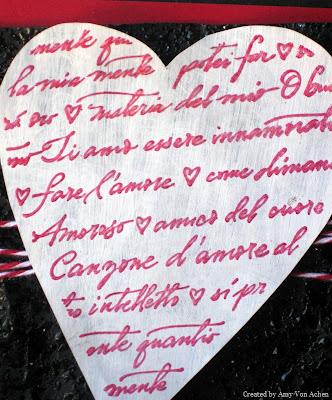 mente qu
la mia mente potei for ♡ so
oro ♡ materia del mio O bu
mo Ti amo essere innamorat
♡ fare l'amore ♡ come
Amoroso ♡ amico del cuore
Canzone d'amore al
to intelletto ♡ si pr
nte quanto
mente
Created by Amy Von Achen